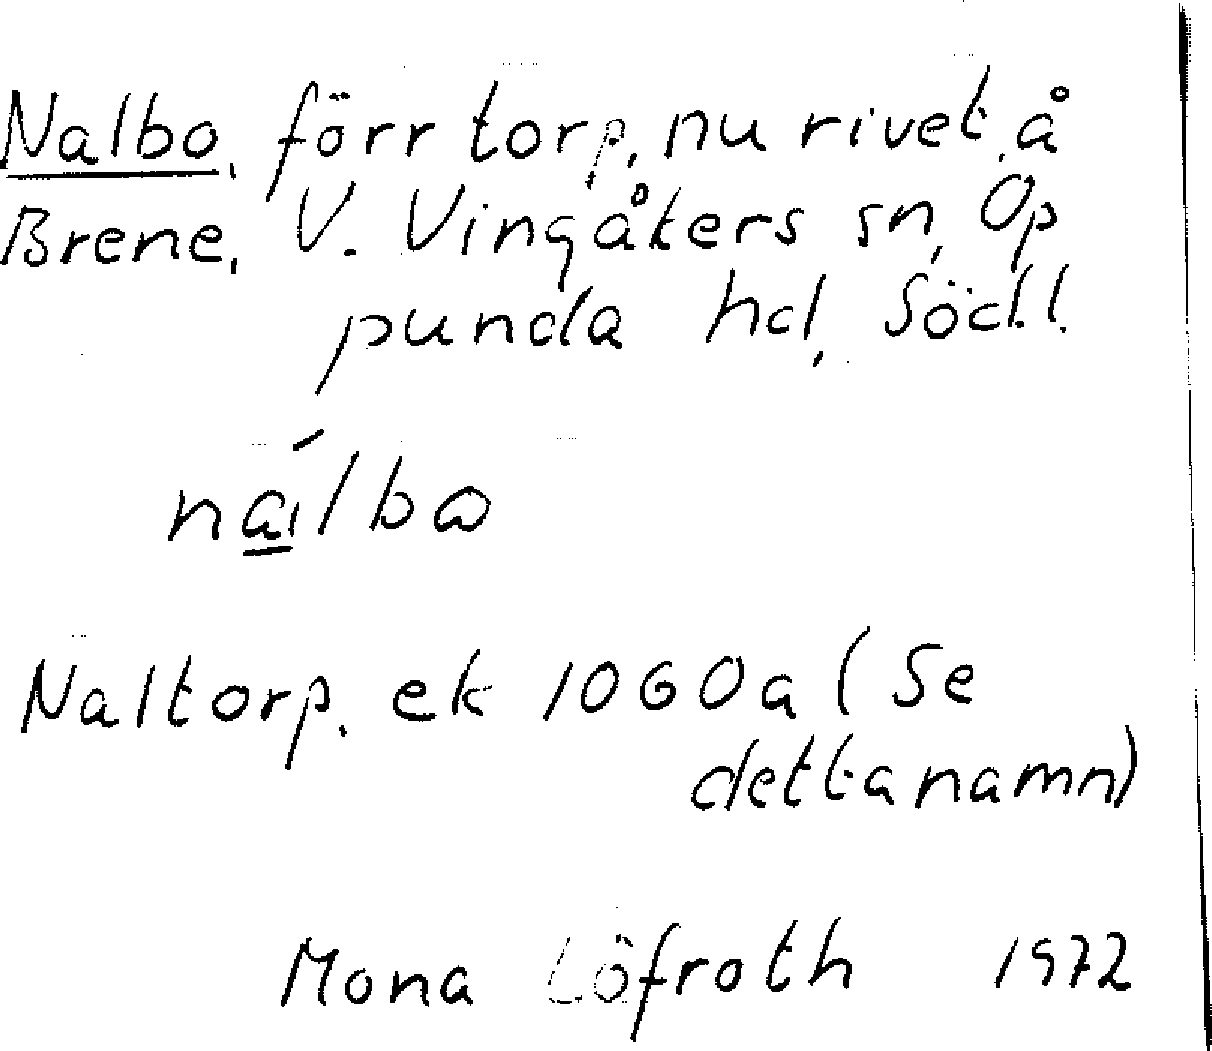 Nalbo, förr torp, nu rivet, å
Brene, V. Vingåkers sn, Op
punda hd, Södl.
Naltorp, ek 1060a (Se
detta namn)
Mona Löfroth 1972